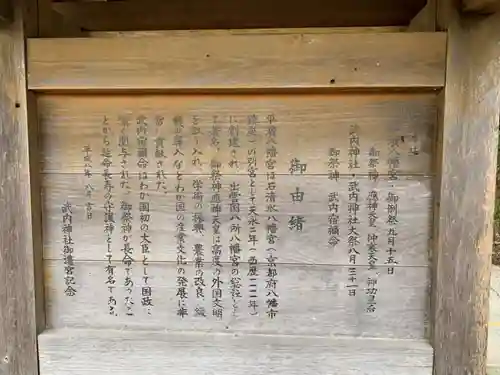 八幡宮・御例祭九月十五日
御祭神 應神天皇 仲哀天皇 神功皇后
武内神社・武内神社大祭八月三十一日
御祭神 武内宿禰命
御由緒
平濱八幡宮は石清水八幡宮(京都府八幡市
鎮座)の別宮として天永二年(西暦一一一一年)
に創建され、出雲国八所八幡宮の総社として
も著名。御祭神應神天皇は高度の外国文明
を取り入れ、学術の振興、農業の改良、織
機の導入などわが国の産業文化の発展に率
先し貢献された。
武内宿禰命はわが国初の大臣として国政に
関与された。御祭神が長命であったこ
とから延命長寿の守護神として有名である。
平成八年八月吉日
武内神社御遷宮記念